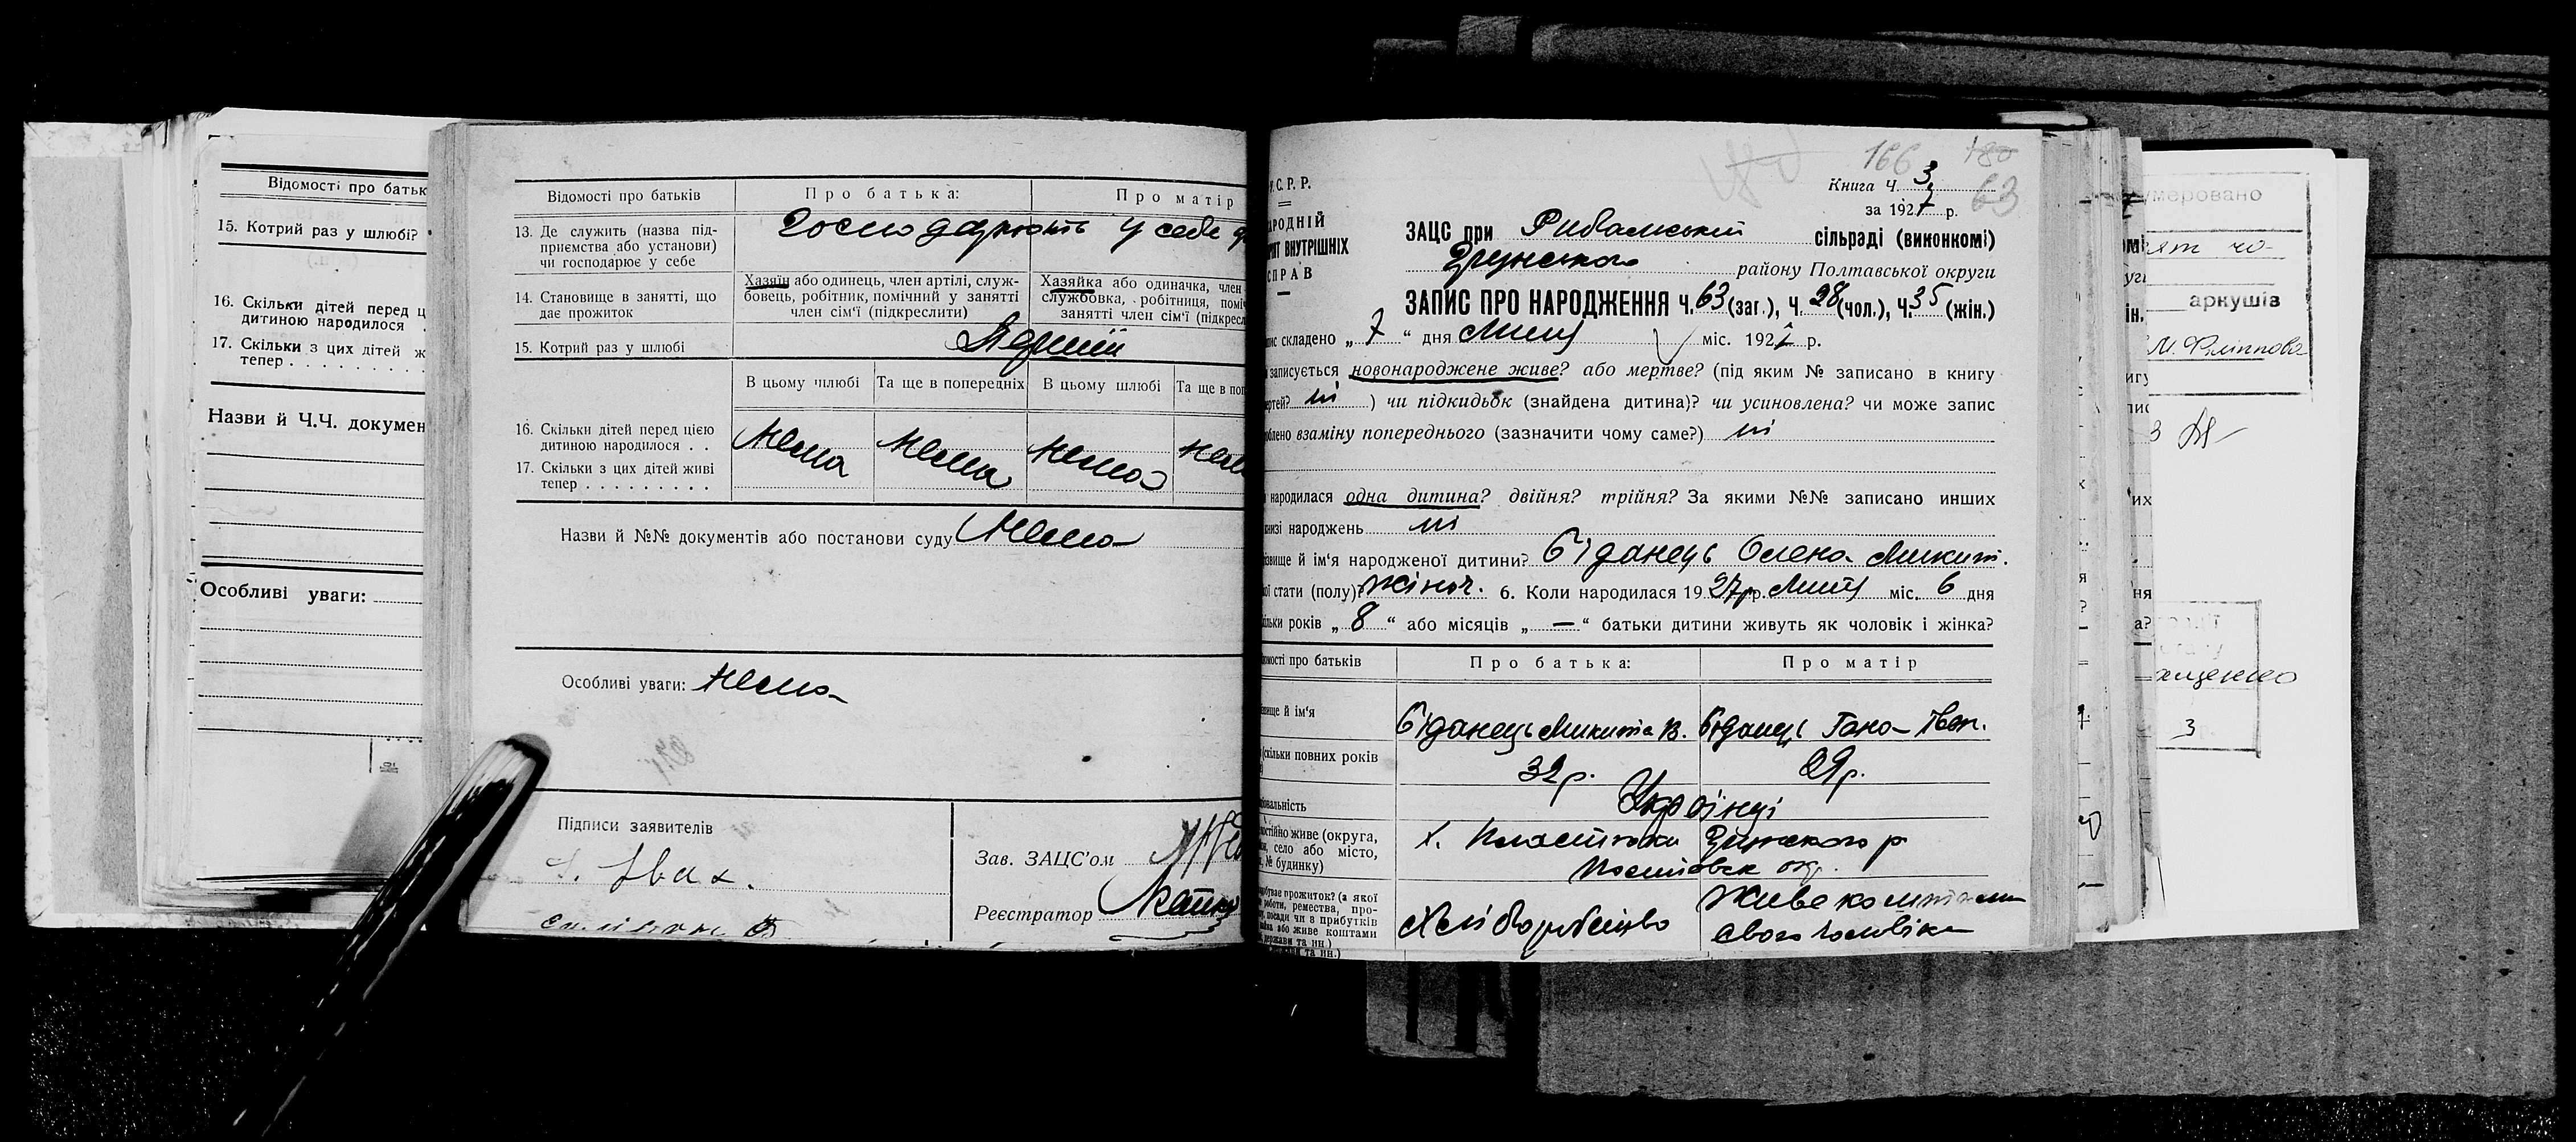 Відомості про батьк
15. Котрий раз у шлюбі?
16. Скільки дітей перед ц
дитиною народилося .
17. Скільки з цих дітей ж
тепер . . . . . . . . .
Назви й Ч.Ч. докумен
Особливі уваги:
Відомості про батьків
Про батька:
Про матір
13. Де служить (назва під-
приємства або установи)
чи господарює у себе
Господарюють у себе
14. Становище в занятті, що
дає прожиток
Хазяїн або одинець, член артілі, служ-
бовець, робітник, помічний у занятті
член сім'ї (підкреслити)
Хазяйка або одиначка, член
службовка, робітниця, поміч
занятті член сім'ї (підкресл
15. Котрий раз у шлюбі
Перший
В цьому шлюбі Та ще в попередніх В цьому шлюбі Та ще в поп
16. Скільки дітей перед цією
дитиною народилося . .
17. Скільки з цих дітей живі
тепер . . . . . . . . .
Нема Нема Нема Нема
Назви й №№ документів або постанови суду Нема
Особливі уваги: Нема
Підписи заявителів
Зав. ЗАЦС'ом
Реєстратор
166 180
63
Книга Ч. 3
за 1927 р.
У.С.Р.Р.
АРОДНІЙ
РІЯТ ВНУТРІШНІХ
СПРАВ
ЗАЦС при сільраді (виконкомі)
району Полтавської округи
ЗАПИС ПРО НАРОДЖЕННЯ Ч. 63 (заг.), Ч. 28 (чол.), Ч. 35 (жін.)
пис складено „ 7 “ дня Липня міс. 1927 р.
записується новонароджене живе? або мертве? (під яким № записано в книгу
ертей? ні ) чи підкидьок (знайдена дитина)? чи усиновлена? чи може запис
облено взаміну попереднього (зазначити чому саме?) ні
народилася одна дитина? двійня? трійня? За якими №№ записано инших
книзі народжень ні
ізвище й ім'я народженої дитини? Біданець Олена Микит.
кої стати (полу)? жіноч. 6. Коли народилася 1927р. Липня міс. 6 дня
ільки років „ 8 “ або місяців „ — “ батьки дитини живуть як чоловік і жінка?
домості про батьків
Про батька:
Про матір
ізвище й ім'я
Біданець Микита В. Біданець Гана Іван.
(скільки повних років
32р. 29р.
ціональність
Українці
постійно живе (округа,
н, село або місто,
№ будинку)
робуває прожиток? (з якої
роботи, ремества, про-
посади чи з прибутків
або живе коштами
держави та ин.)
Хліборобство
Живе коштами
свого чоловіка
умеровано
аркушів
М. Філіппова
3